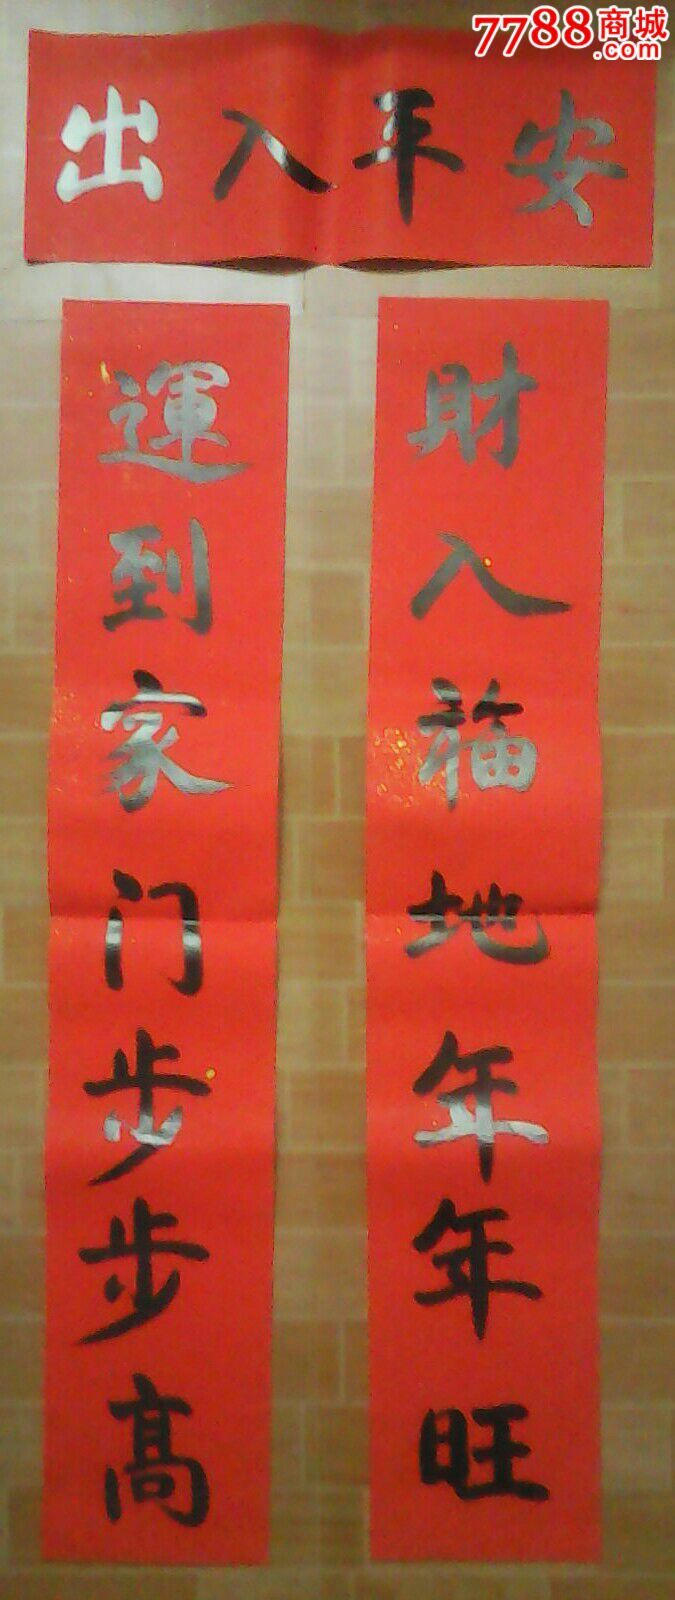 7788商城
.com
出入平安
運到家门步步高
財入福地年年旺